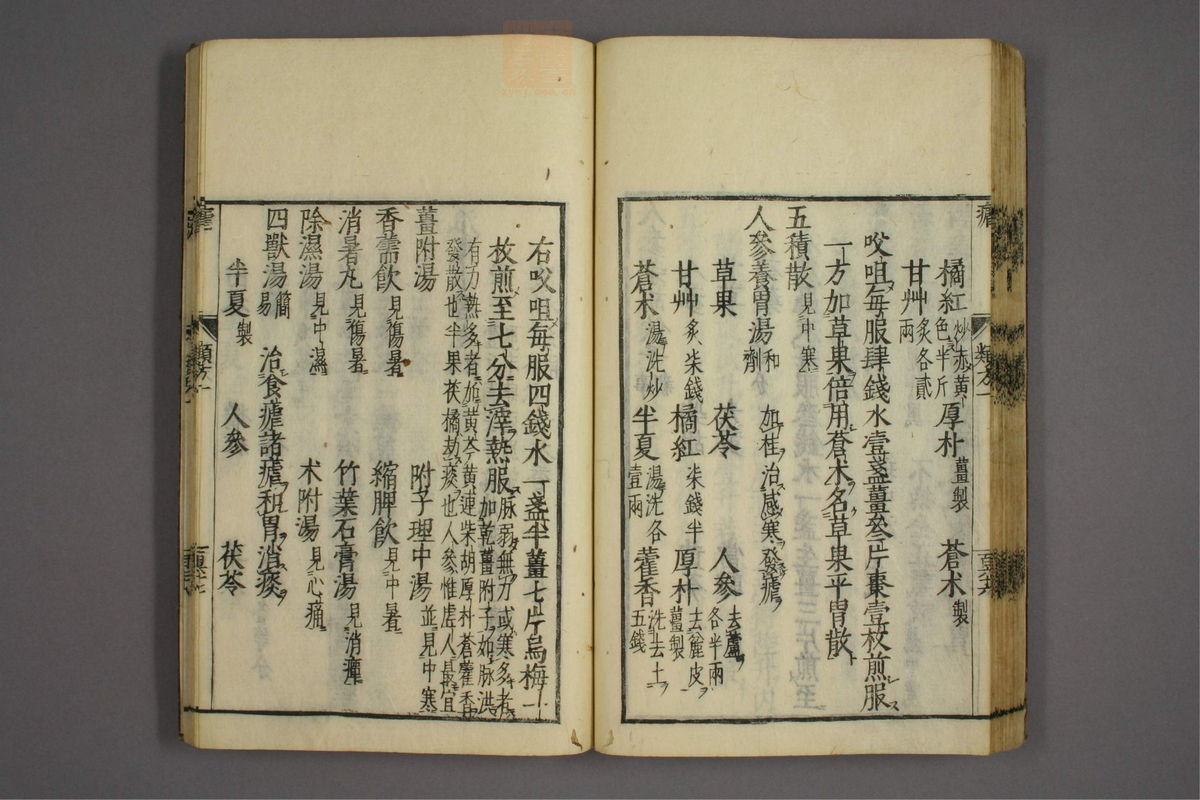 橘紅炒赤黄色半斤 厚朴薑製 蒼朮製
甘艸炙各貳兩
㕮咀每服肆錢水壹盞薑叄片棗壹枚煎服
一方加草果倍用蒼朮名草果平胃散
五積散見中寒
人參養胃湯和劑 加桂治感寒發瘧
草果 茯苓 人參去蘆各半兩
甘艸炙柒錢 橘紅柒錢半 厚朴去麄皮薑製
蒼朮湯洗炒 半夏湯洗各壹兩 藿香洗去土五錢
右㕮咀每服四錢水一盞半薑七片烏梅一
枚煎至七分去滓熱服脉弱無力或寒多者加乾薑附子如脉洪
有力熱多者加黄芩黄連柴胡厚朴蒼藿香
發散也半果茯橘劫痰也人參惟虛人最宜
薑附湯 附子理中湯並見中寒
香薷飲見傷暑 縮脾飲見中暑
消暑丸見傷暑 竹葉石膏湯見消癉
除濕湯見中濕 朮附湯見心痛
四獸湯簡易 治食瘧諸瘧和胃消痰
半夏製 人參 茯苓
瘧 類方一